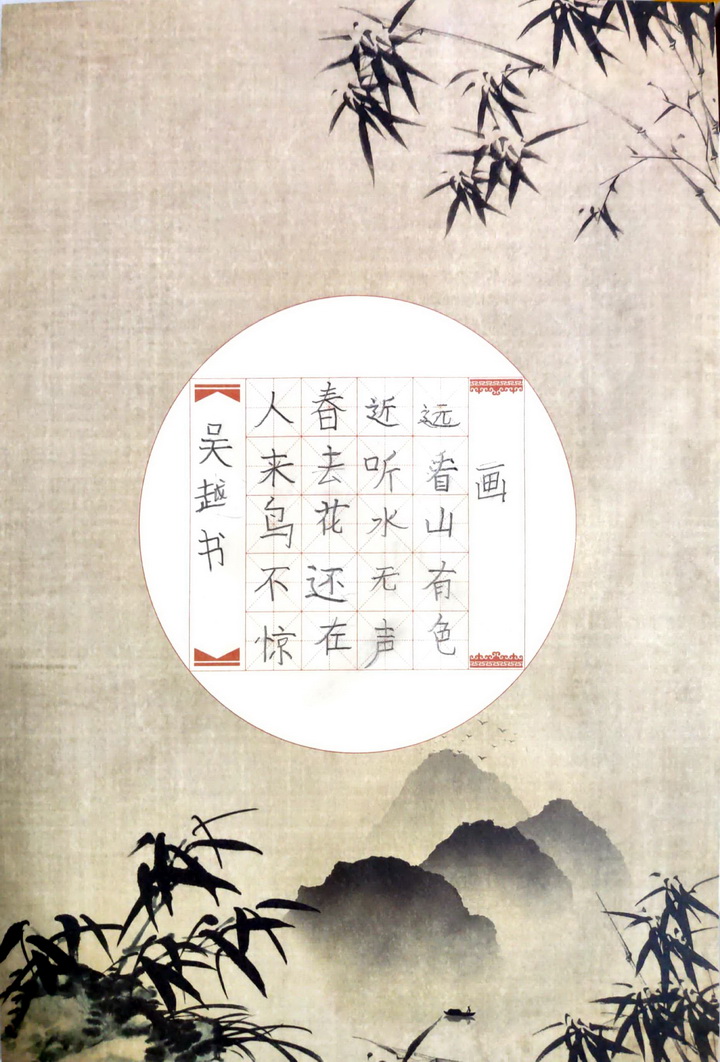 画
远看山有色
近听水无声
春去花还在
人来鸟不惊
吴越书